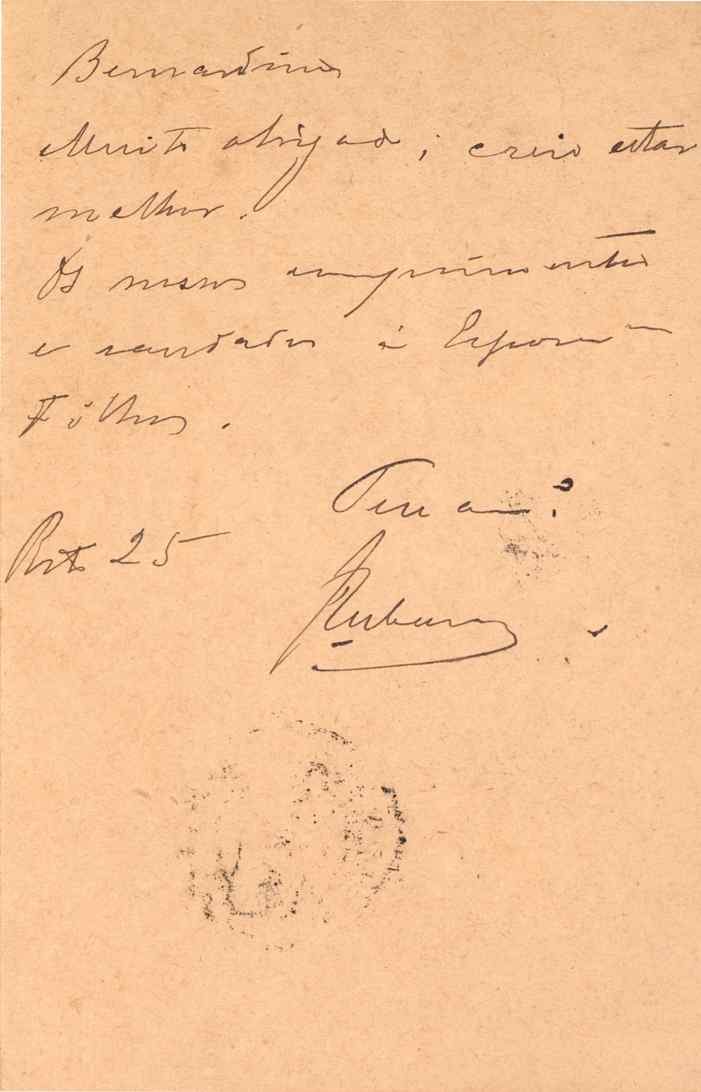 Bernardino
Muito obrigado; creio estar
melhor.
Os nossos cumprimentos
e saudades á Esposa e
Filhos.
Teu am.º
Porto 25